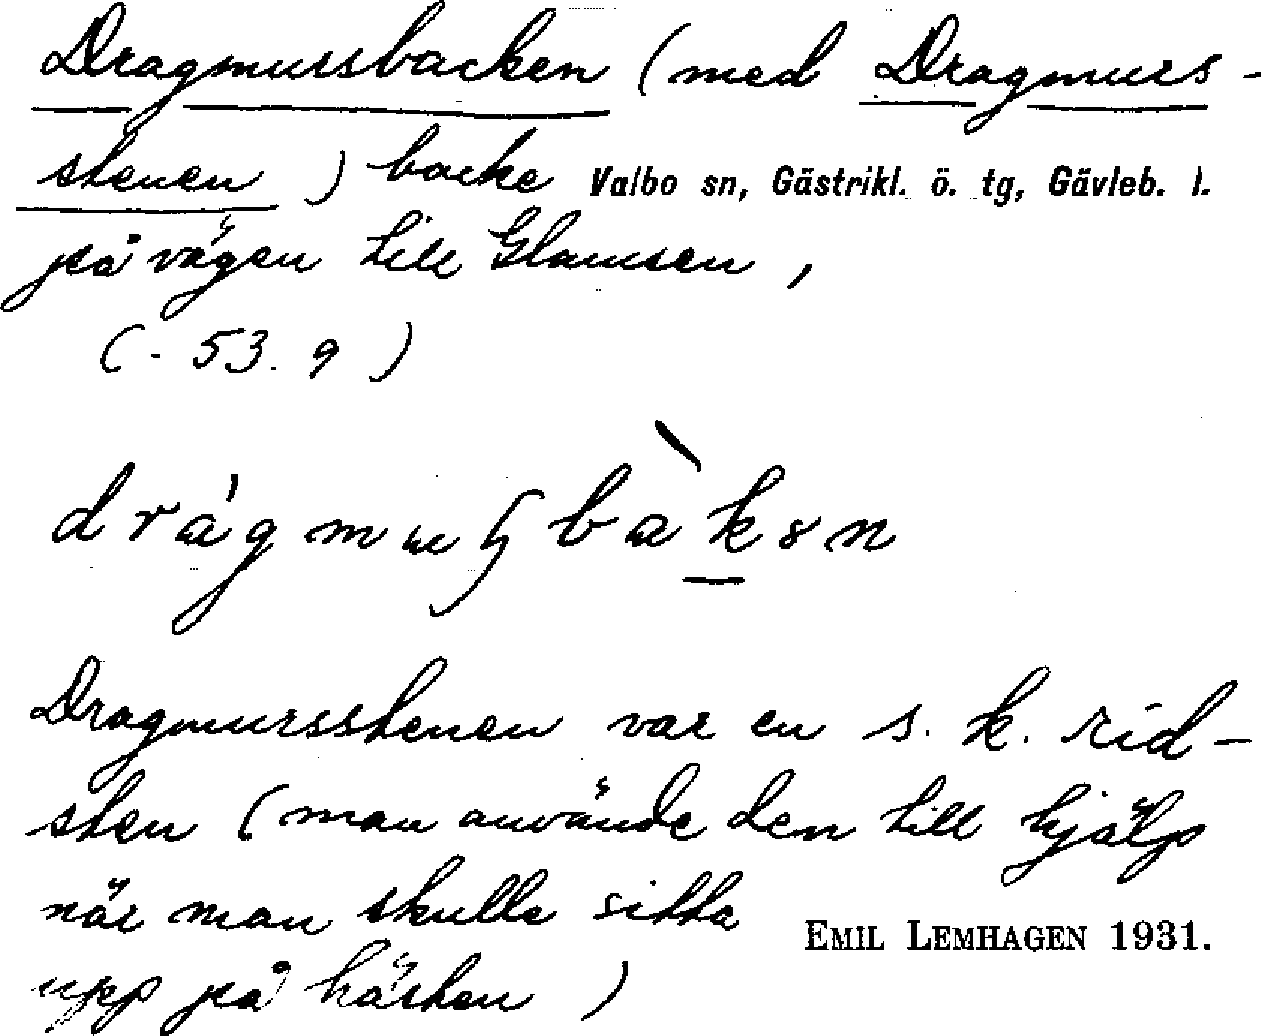 Dragmursbacken (med Dragmurs-
stenen) backe Valbo sn, Gästrikl. ö. tg, Gävleb. l.
på vägen till Glamsen,
(- 53. 9)
Dragmursstenen var en s. k. rid-
sten (man använde den till hjälp
när man skulle sitta
EMIL LEMHAGEN 1931.
upp på hästen)